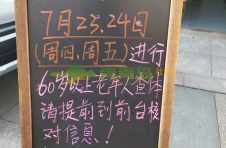 7月25.24日
(周四、周五)进行
60岁以上老年人查体
请提前到前台核
对信息！